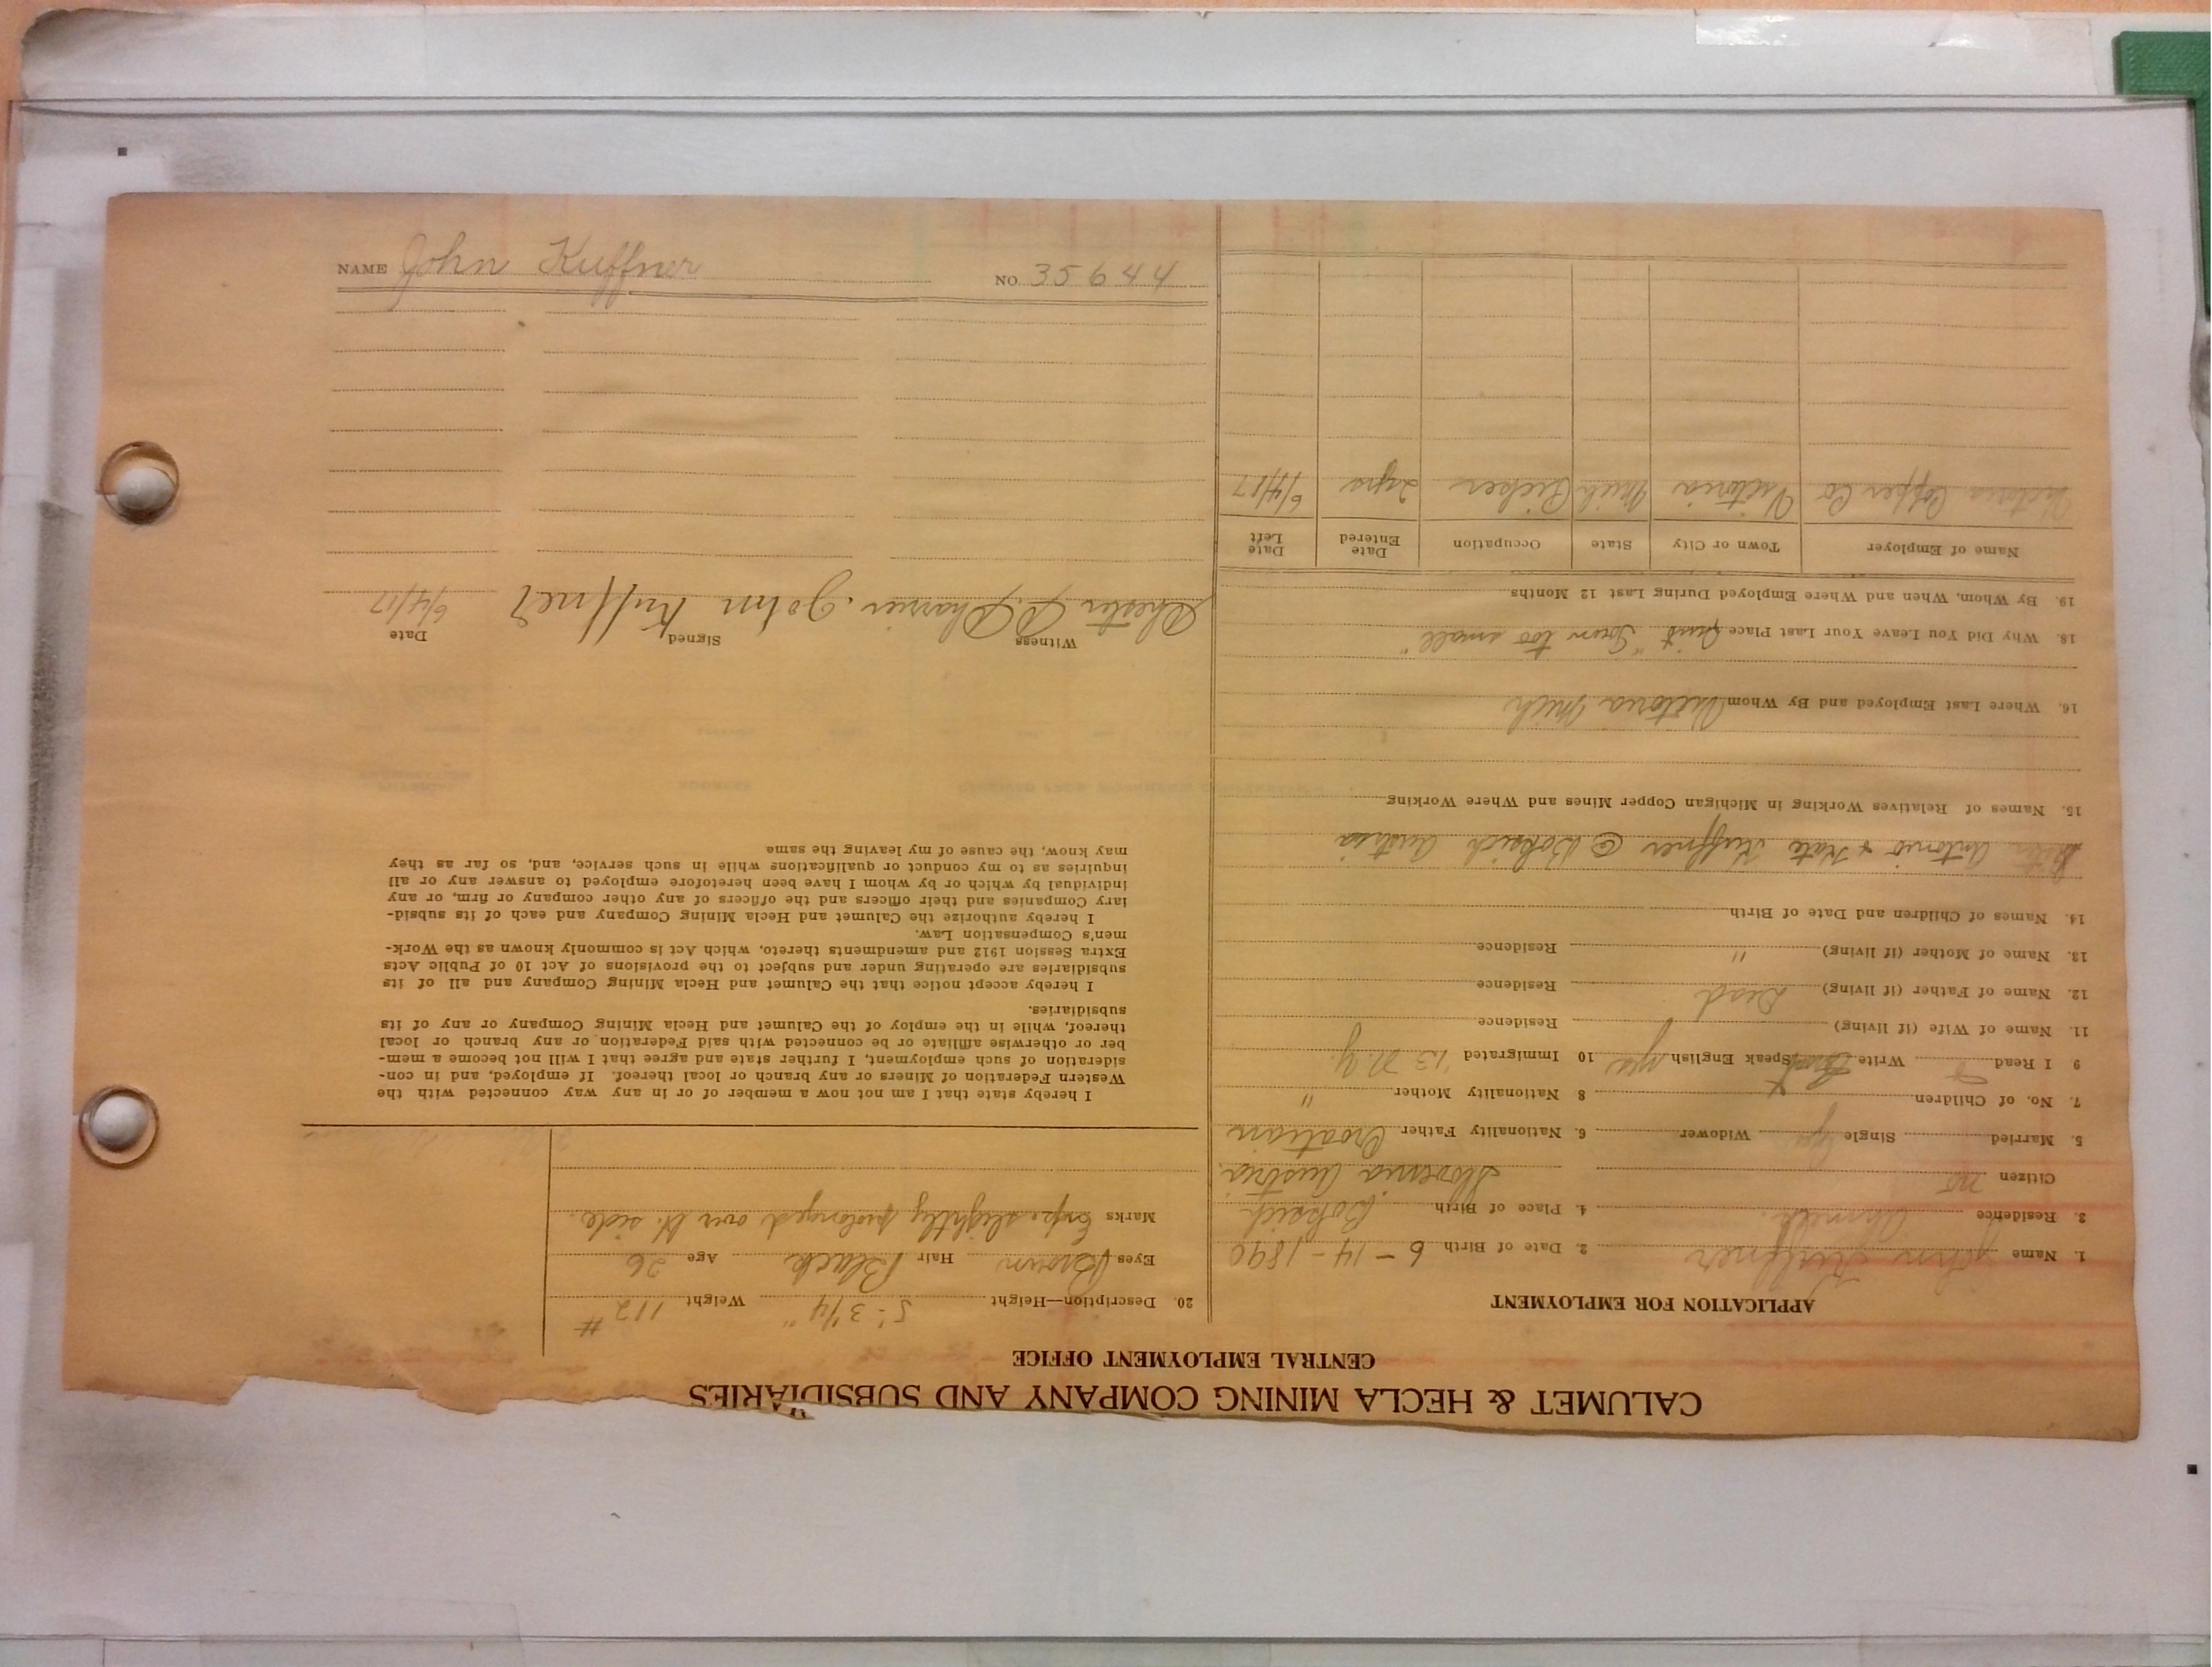 CALUMET & HECLA MINING COMPANY AND SUBSIDIARIES
CENTRAL EMPLOYMENT OFFICE
APPLICATION FOR EMPLOYMENT
1. Name John Kuffner 2. Date of Birth 6-14-1890
3. Residence Ahmeek. 4. Place of Birth Boksich
Citizen no Slovenia Austria.
5. Married Single yes Widower 6. Nationality Father Croatian
7. No. of Children 8 Nationality Mother "
9 I Read Write Speak English yes 10 Immigrated '13 N.Y.
11. Name of Wife (if living) Residence
12. Name of Father (if living) Dead Residence
13. Name of Mother (if living) " Residence
14. Names of Children and Date of Birth
Antonio + Kate Kuffner @ Boksich Austria
15. Names of Relatives Working in Michigan Copper Mines and Where Working
16. Where Last Employed and By Whom Victoria Mich
18. Why Did You Leave Your Last Place Quit "Town too small"
19. By Whom, When and Where Employed During Last 12 Months
Name of Employer Town or City State Occupation Date Entered Date Left
Victoria Copper Co Victoria Mich Picker 2 yrs 6/4/17
20. Description—Height 5'-3 1/4" Weight 112 #
Eyes Brown Hair Black Age 26
Marks slightly prolonged over lt. side.
I hereby state that I am not now a member of or in any way connected with the
Western Federation of Miners or any branch or local thereof. If employed, and in con-
sideration of such employment, I further state and agree that I will not become a mem-
ber or otherwise affiliate or be connected with said Federation or any branch or local
thereof, while in the employ of the Calumet and Hecla Mining Company or any of its
subsidiaries.
I hereby accept notice that the Calumet and Hecla Mining Company and all of its
subsidiaries are operating under and subject to the provisions of Act 10 of Public Acts
Extra Session 1912 and amendments thereto, which Act is commonly known as the Work-
men's Compensation Law.
I hereby authorize the Calumet and Hecla Mining Company and each of its subsid-
iary Companies and their officers and the officers of any other company or firm, or any
individual by which or by whom I have been heretofore employed to answer any or all
inquiries as to my conduct or qualifications while in such service, and, so far as they
may know, the cause of my leaving the same
Witness Signed Date
Chester John Kuffner 6/4/17
NAME John Kuffner NO. 35644